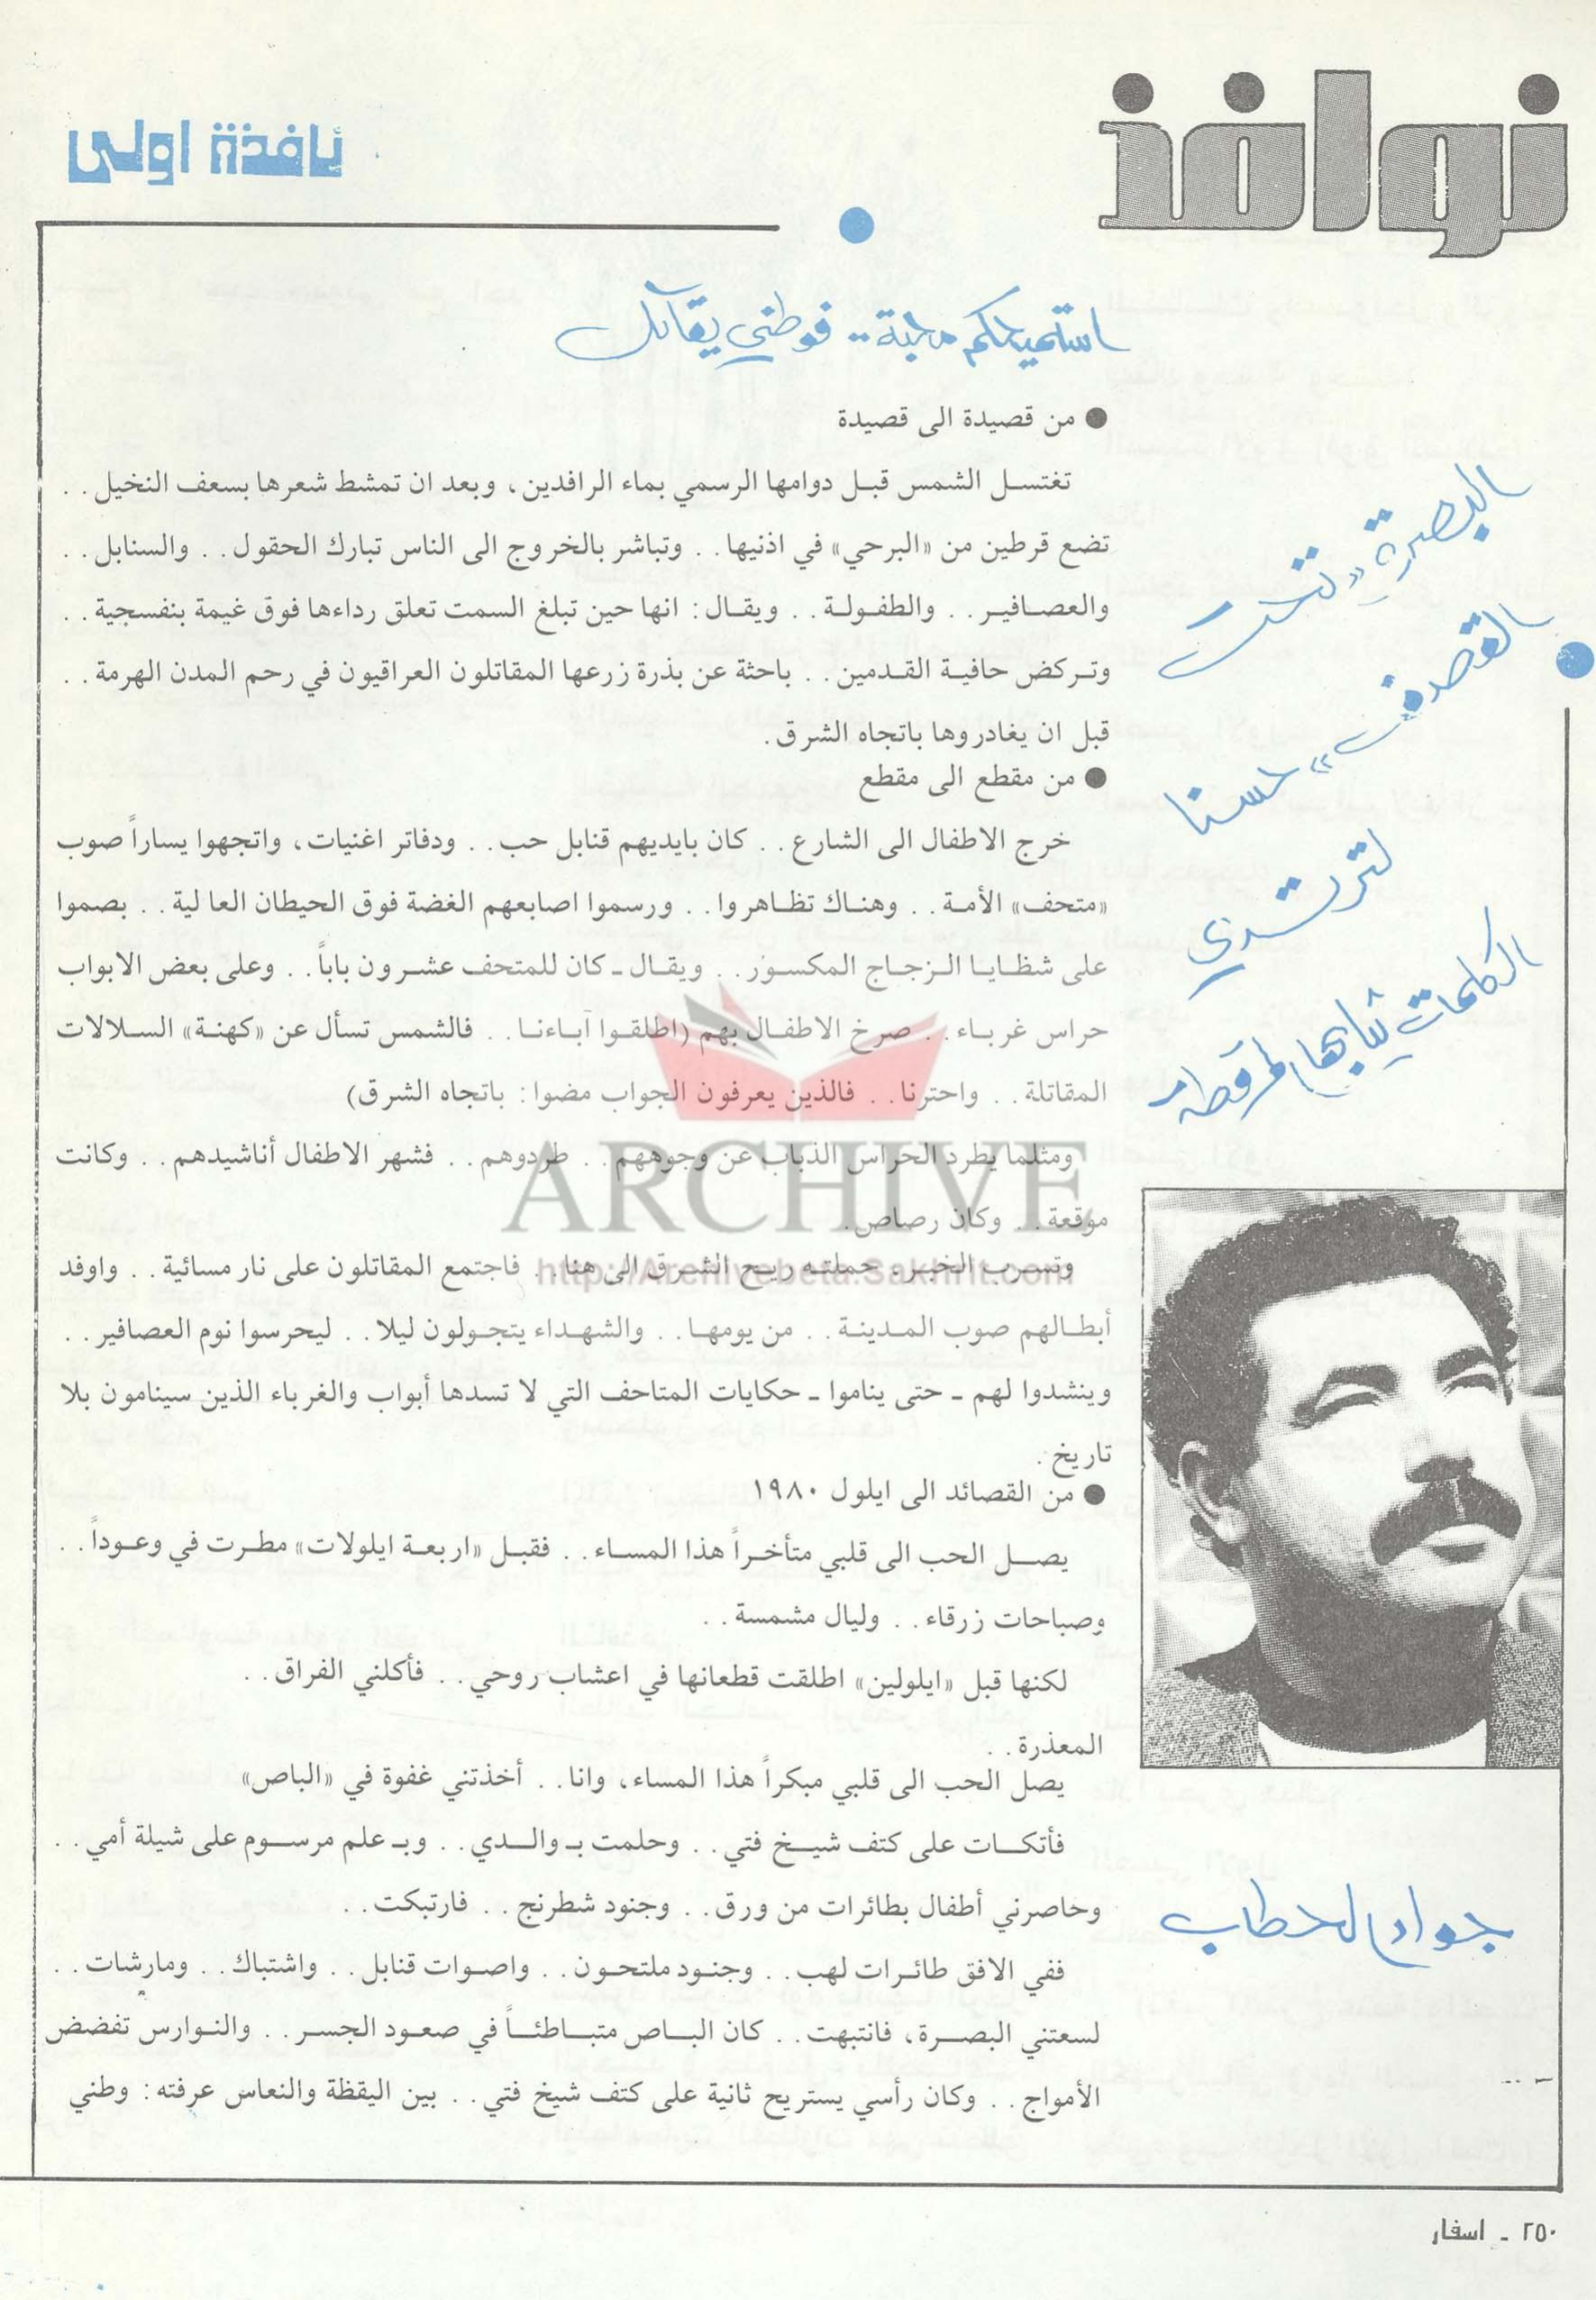 نوافذ
نافذة اولى
استميحكم محبة.. فوطني يقاتل
البصرة «تشرب
القصف» حسنا
لترتدي
الكلمات ثيابها المرقطة
جواد الحطاب
● من قصيدة الى قصيدة
تغتسل الشمس قبل دوامها الرسمي بماء الرافدين، وبعد ان تمشط شعرها بسعف النخيل . .
تضع قرطين من «البرحي» في اذنيها . . وتباشر بالخروج الى الناس تبارك الحقول . . والسنابل . .
والعصافير . . والطفولة . . ويقال: انها حين تبلغ السمت تعلق رداءها فوق غيمة بنفسجية . .
وتركض حافية القدمين . . باحثة عن بذرة زرعها المقاتلون العراقيون في رحم المدن الهرمة . .
قبل ان يغادروها باتجاه الشرق.
● من مقطع الى مقطع
خرج الاطفال الى الشارع . . كان بايديهم قنابل حب . . ودفاتر اغنيات، واتجهوا يساراً صوب
«متحف» الأمة . . وهناك تظاهروا . . ورسموا اصابعهم الغضة فوق الحيطان العالية . . بصموا
على شظايا الزجاج المكسور . . ويقال ـ كان للمتحف عشرون باباً . . وعلى بعض الابواب
حراس غرباء . . صرخ الاطفال بهم (اطلقوا آباءنا . . فالشمس تسأل عن «كهنة» السلالات
المقاتلة . . واحترنا . . فالذين يعرفون الجواب مضوا: باتجاه الشرق)
ومثلما يطرد الحراس الذباب عن وجوههم . . طردوهم . . فشهر الاطفال أناشيدهم . . وكانت
موقعة . . وكان رصاص.
وتسرب الخبر. حملته ريح الشرق الى هنا . . فاجتمع المقاتلون على نار مسائية . . واوفد
أبطالهم صوب المدينة . . من يومها . . والشهداء يتجولون ليلا . . ليحرسوا نوم العصافير . .
وينشدوا لهم ـ حتى يناموا ـ حكايات المتاحف التي لا تسدها أبواب والغرباء الذين سينامون بلا
تاريخ .
● من القصائد الى ايلول ١٩٨٠
يصل الحب الى قلبي متأخراً هذا المساء . . فقبل «اربعة ايلولات» مطرت في وعوداً . .
وصباحات زرقاء . . وليال مشمسة . .
لكنها قبل «ايلولين» اطلقت قطعانها في اعشاب روحي . . فأكلني الفراق . .
المعذرة . .
يصل الحب الى قلبي مبكراً هذا المساء، وانا . . أخذتني غفوة في «الباص»
فأتكات على كتف شيخ فتي . . وحلمت بـ والدي . . وبـ علم مرسوم على شيلة أمي . .
وحاصرني أطفال بطائرات من ورق . . وجنود شطرنج . . فارتبكت . .
ففي الافق طائرات لهب . . وجنود ملتحون . . واصوات قنابل . . واشتباك . . ومارشات . .
لسعتني البصرة، فانتبهت . . كان الباص متباطئاً في صعود الجسر . . والنوارس تفضض
الأمواج . . وكان رأسي يستريح ثانية على كتف شيخ فتي . . بين اليقظة والنعاس عرفته: وطني
ARCHIVE
http://Archivebeta.Sakhrit.com
٢٥٠ ـ اسفار